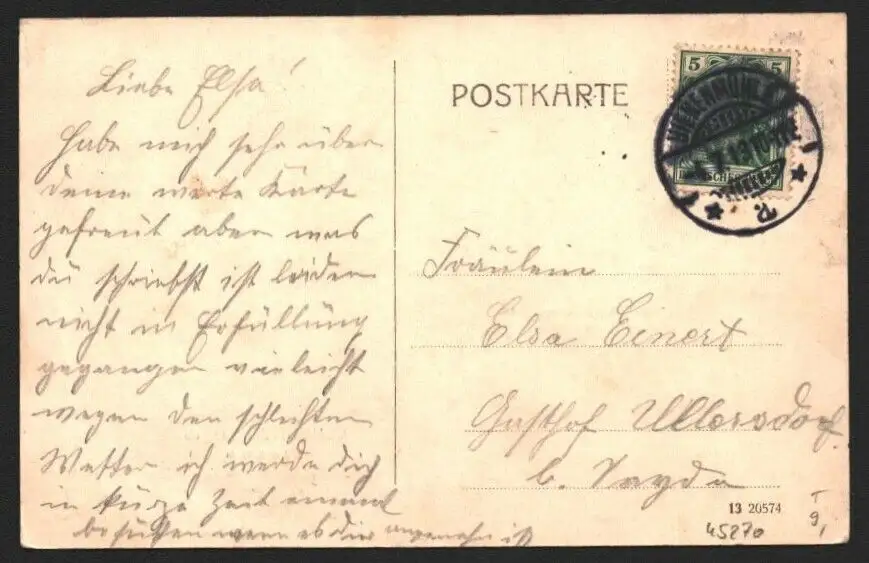 Liebe Elsa!
Habe mich sehr über
deine werte Karte
gefreut aber was
du schriebst ist leider
nicht in Erfüllung
gegangen vieleicht
wegen den schlechten
Wetter ich werde dich
in kurze Zeit einmal
besuchen wenn es dir angenehm ist
POSTKARTE
5 5
BIENENMÜHLE
7.13
Fräulein
Elsa Einert
Gasthof Ullersdorf
b. Sayda
13 20574
45270
T
9,